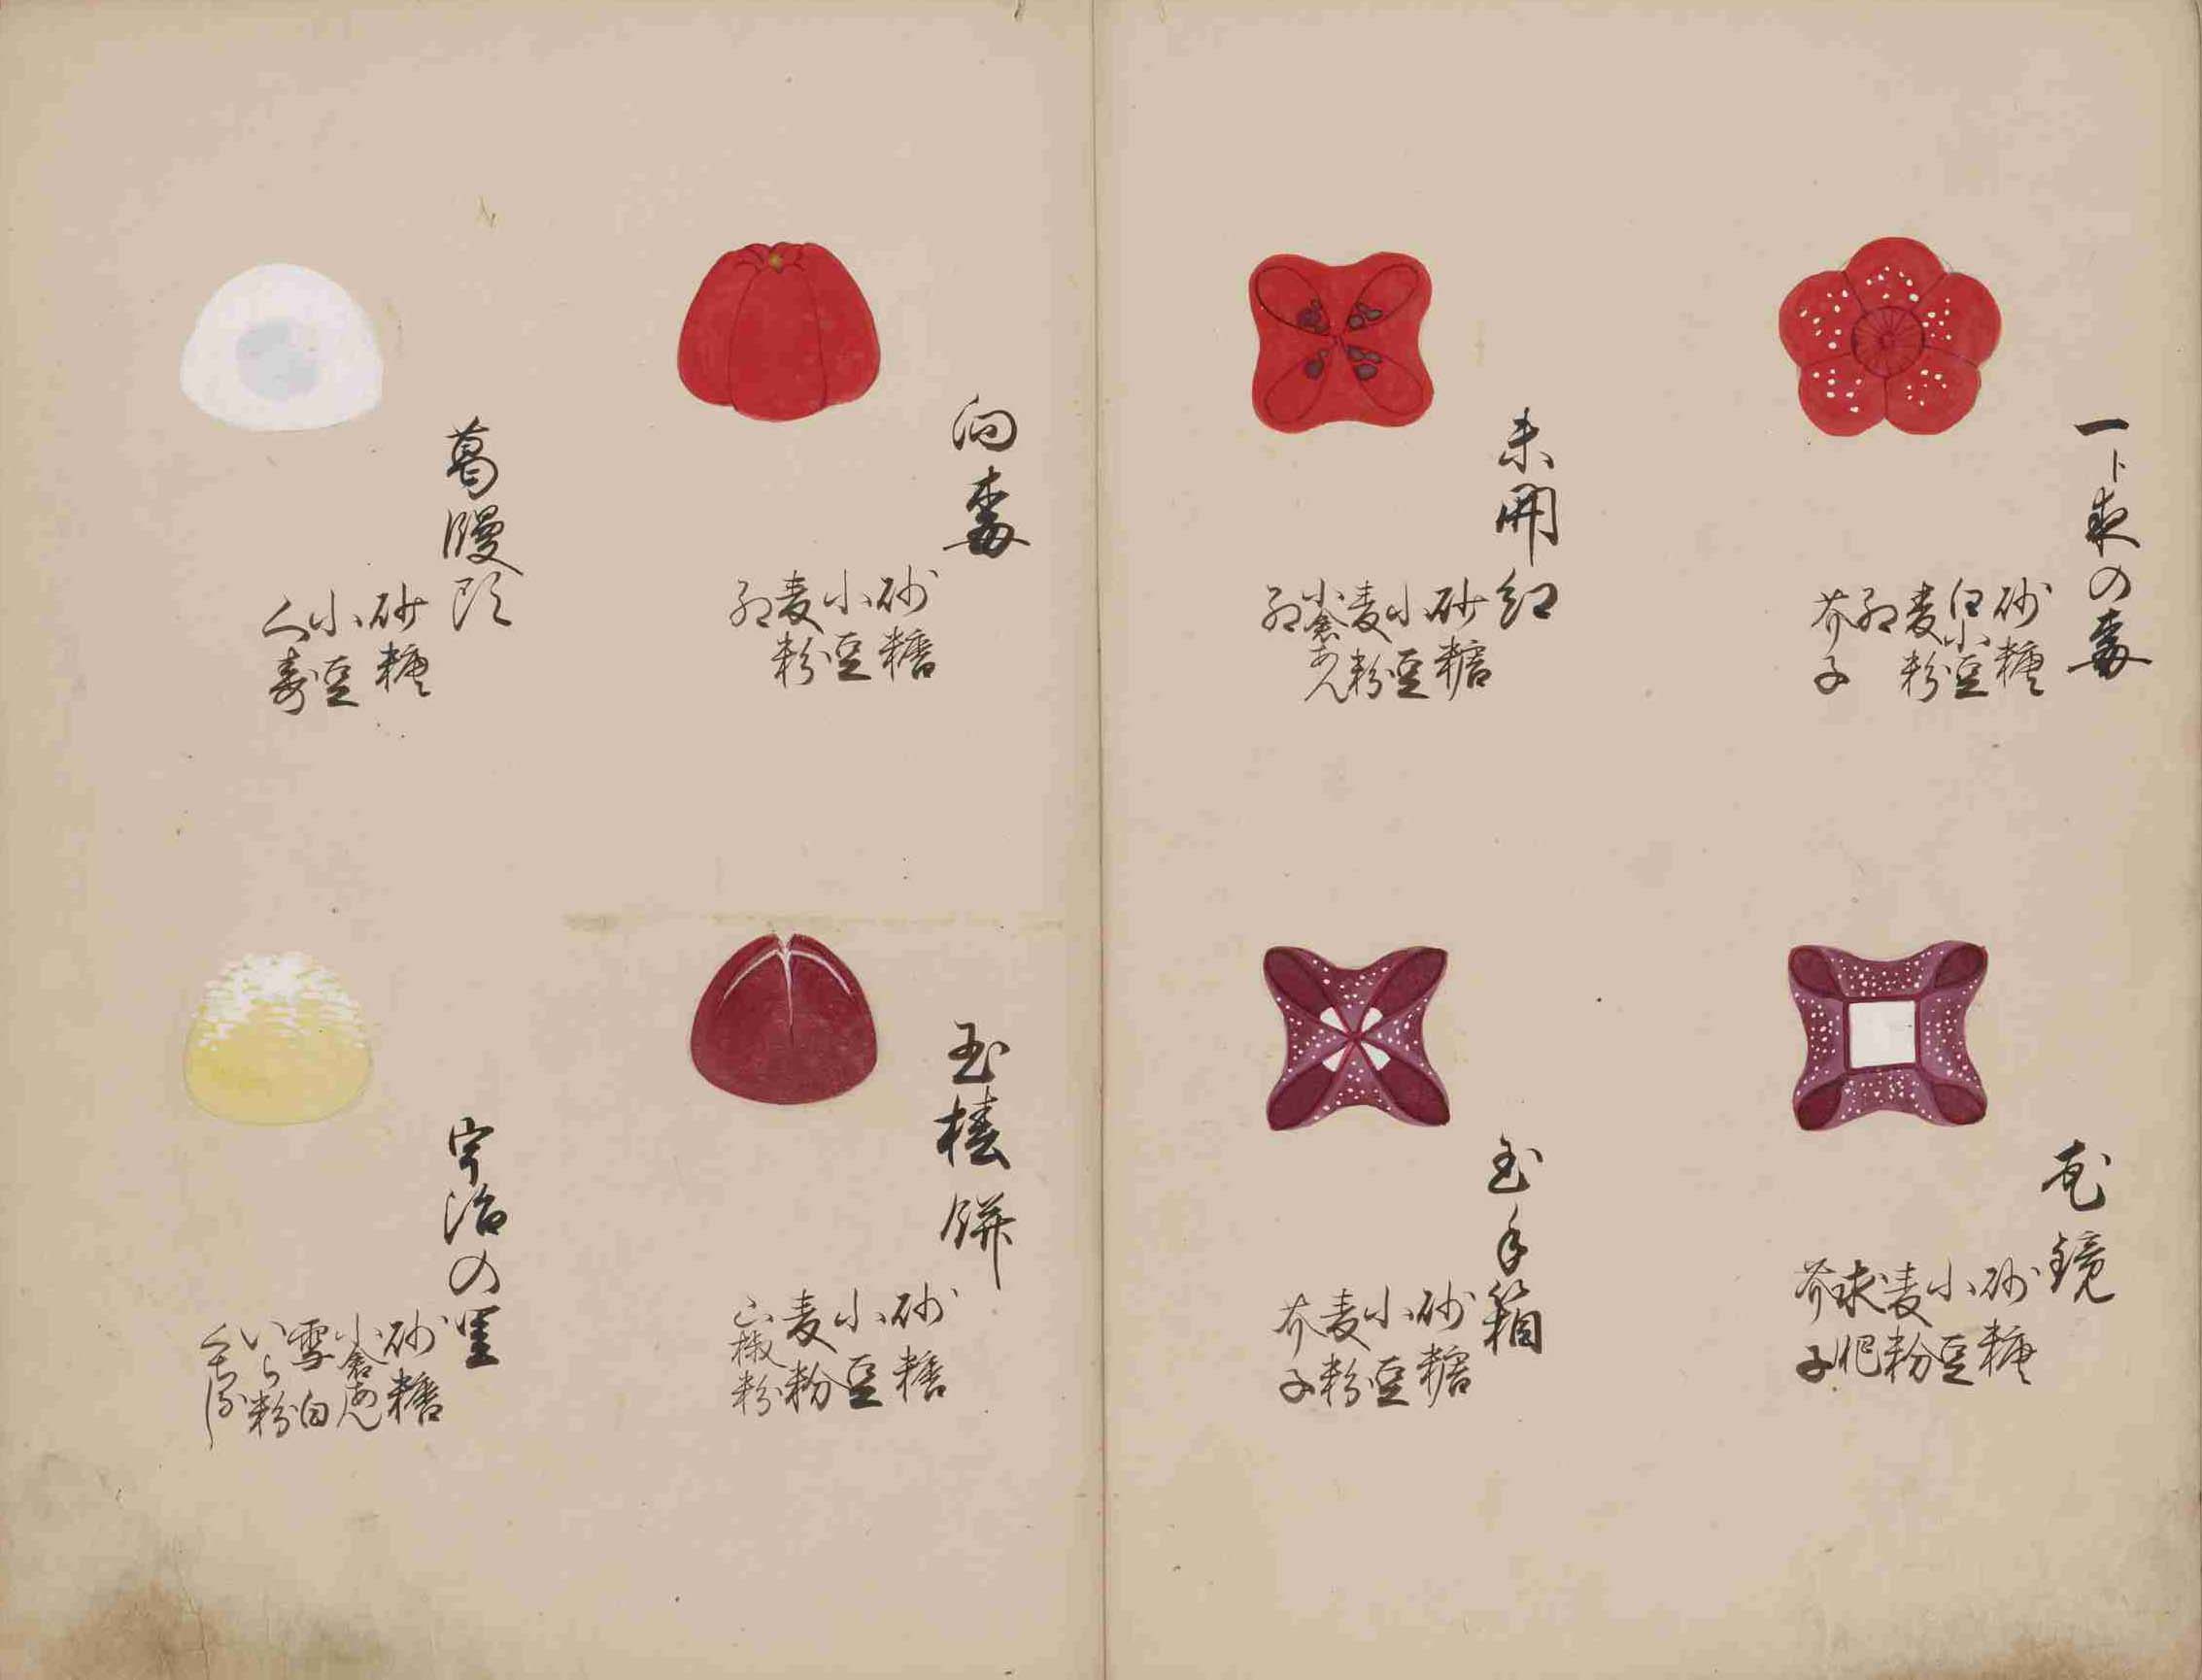 一ト夜の梅
砂糖
白小豆
麦粉
紅
芥子
未開紅
砂糖
小豆
麦粉
小倉あん
紅
花鏡
砂糖
小豆
麦粉
求肥
芥子
玉手箱
砂糖
小豆
麦粉
芥子
向梅
砂糖
小豆
麦粉
紅
葛饅頭
砂糖
小豆
くず
玉椿餅
砂糖
小豆
麦粉
山椒粉
宇治の里
砂糖
小倉あん
雪白
いら粉
くちなし